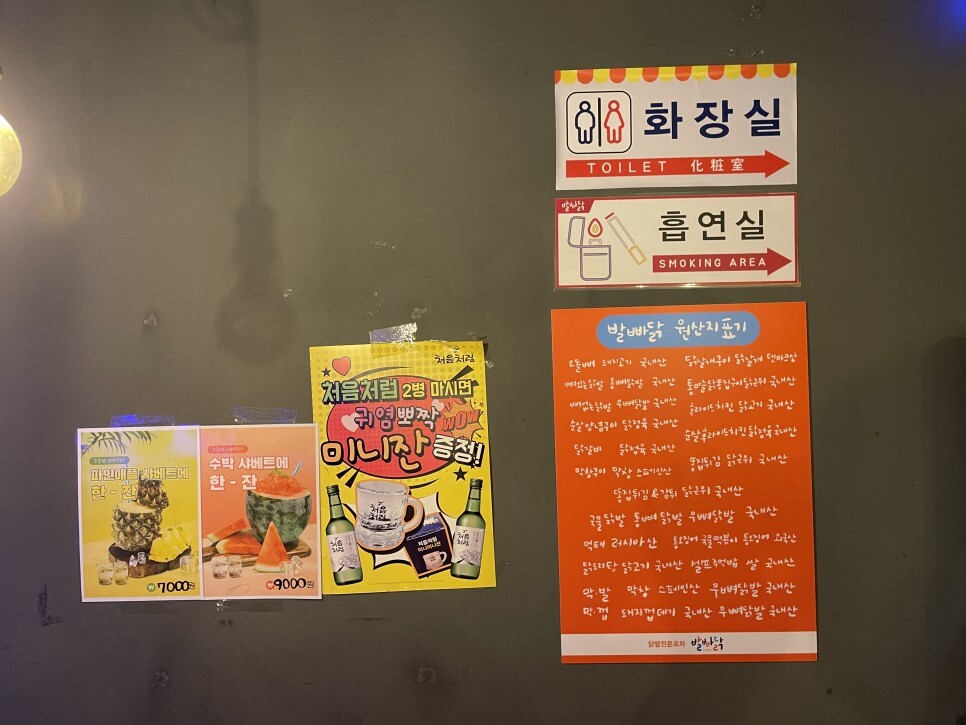 화장실
TOILET 化粧室
발빠닭
흡연실
SMOKING AREA
발빠닭 원산지표기
오돌뼈 돼지고기 국내산
닭날개구이 닭날개 덴마크산
뼈있는닭발 통뼈닭발 국내산
통마늘닭똥집구이 닭근위 국내산
뼈없는닭발 무뼈닭발 국내산
후라이드치킨 닭고기 국내산
숯살양념구이 닭정육 국내산
순살후라이드치킨 닭정육 국내산
닭갈비 닭정육 국내산
똥집튀김 닭근위 국내산
막창구이 막창 스페인산
똥집튀김&감튀 닭근위 국내산
국물닭발 통뼈닭발 무뼈닭발 국내산
먹태 러시아산
통오징어국물떡볶이 통오징어 외국산
닭도리탕 닭고기 국내산
셀프주먹밥 쌀 국내산
막.발 막창 스페인산 무뼈닭발 국내산
막.껍 돼지껍데기 국내산 무뼈닭발 국내산
닭발전문포차 발빠닭
처음처럼
처음처럼 2병 마시면
귀염뽀짝
WOW
미니잔 증정!
처음처럼
처음처럼
처음처럼
미니미니잔
파인애플 샤베트에
한 - 잔
₩7000원
수박 샤베트에
한 - 잔
₩9000원